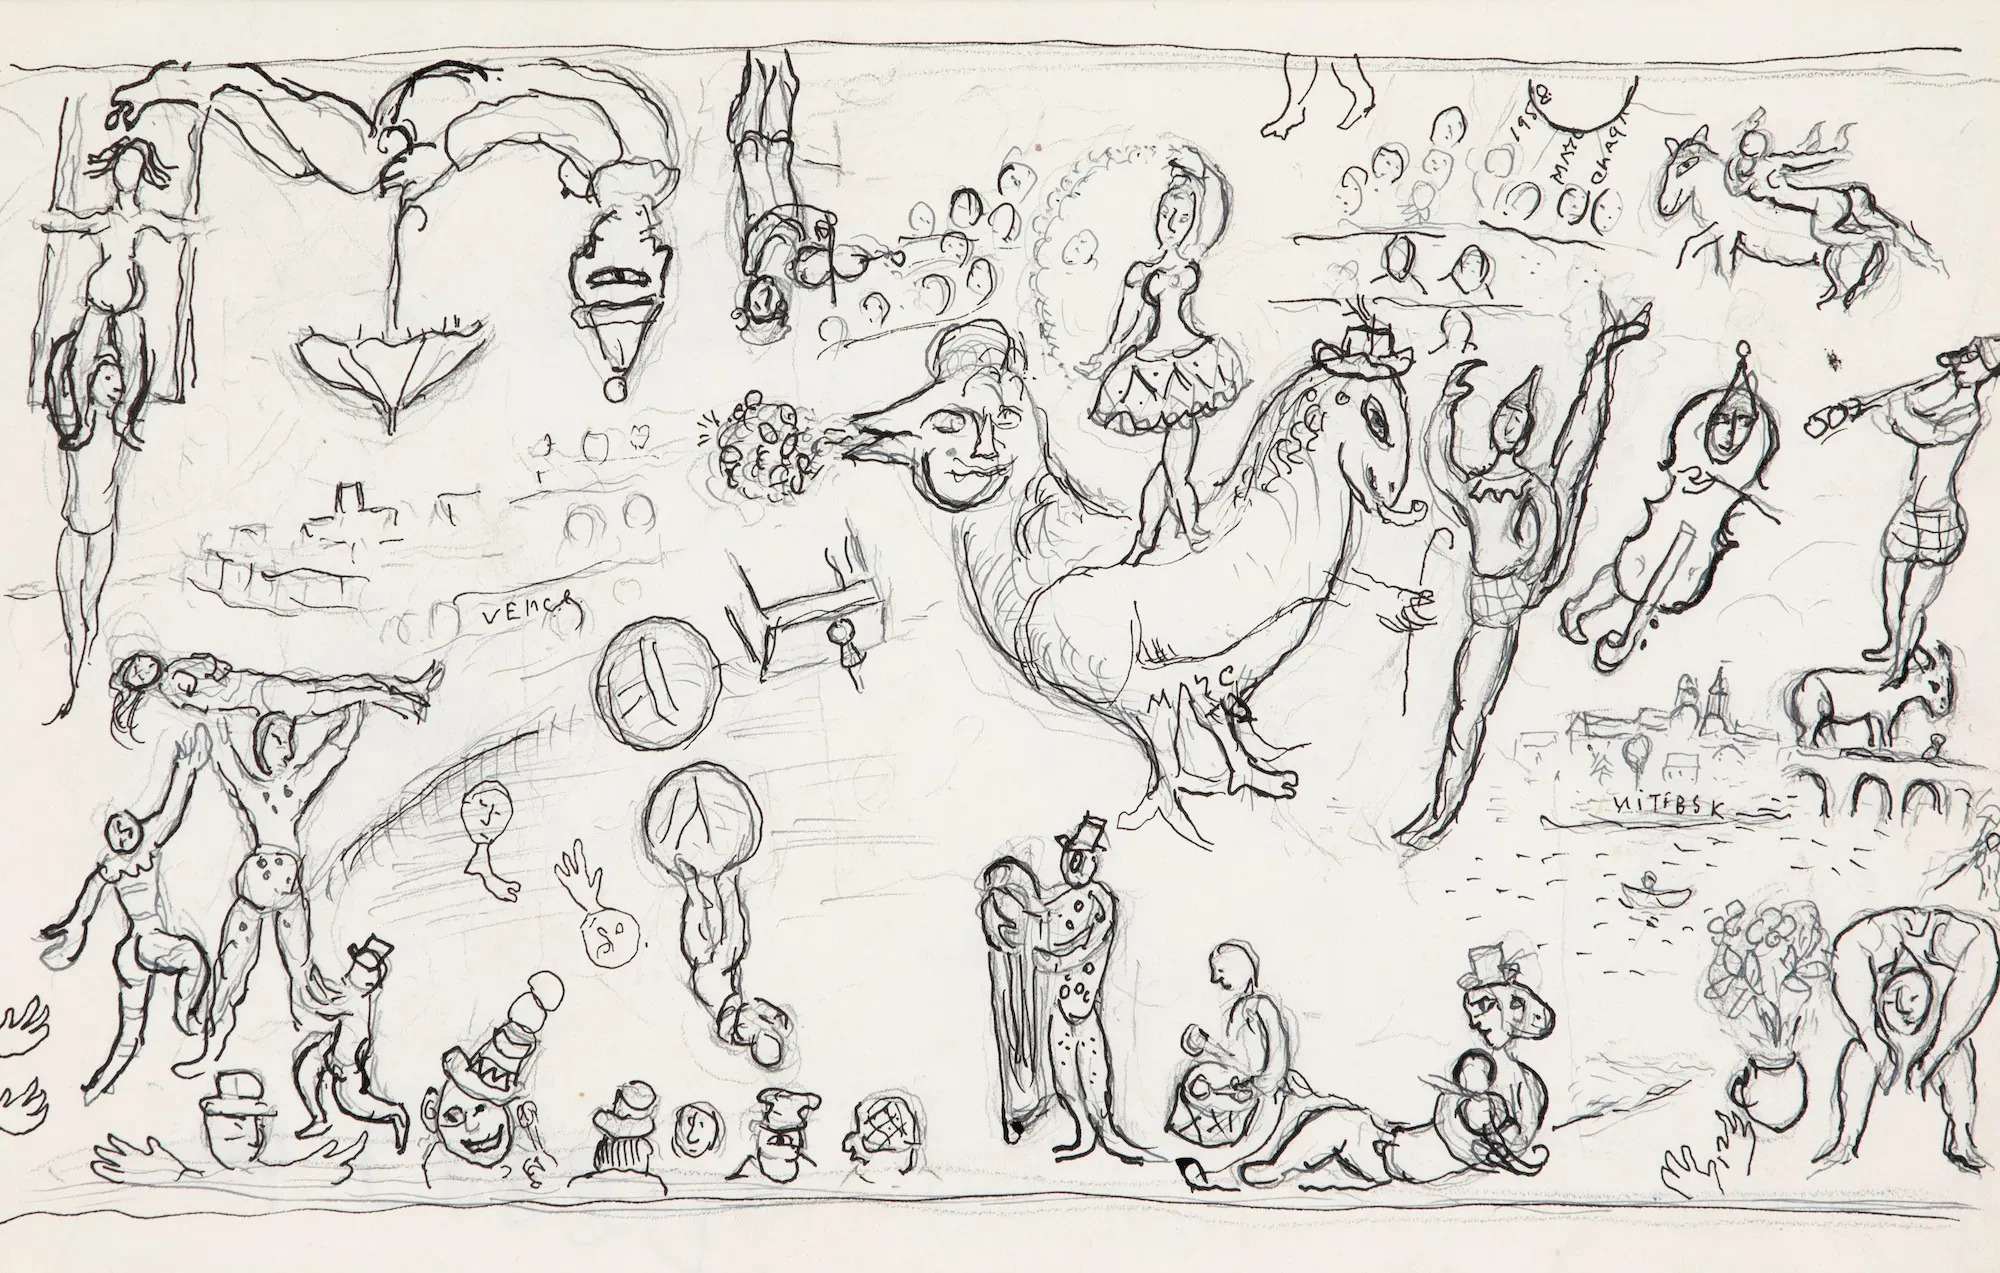 195
MARC
Chagall
VENCE
MARC
VITEBSK